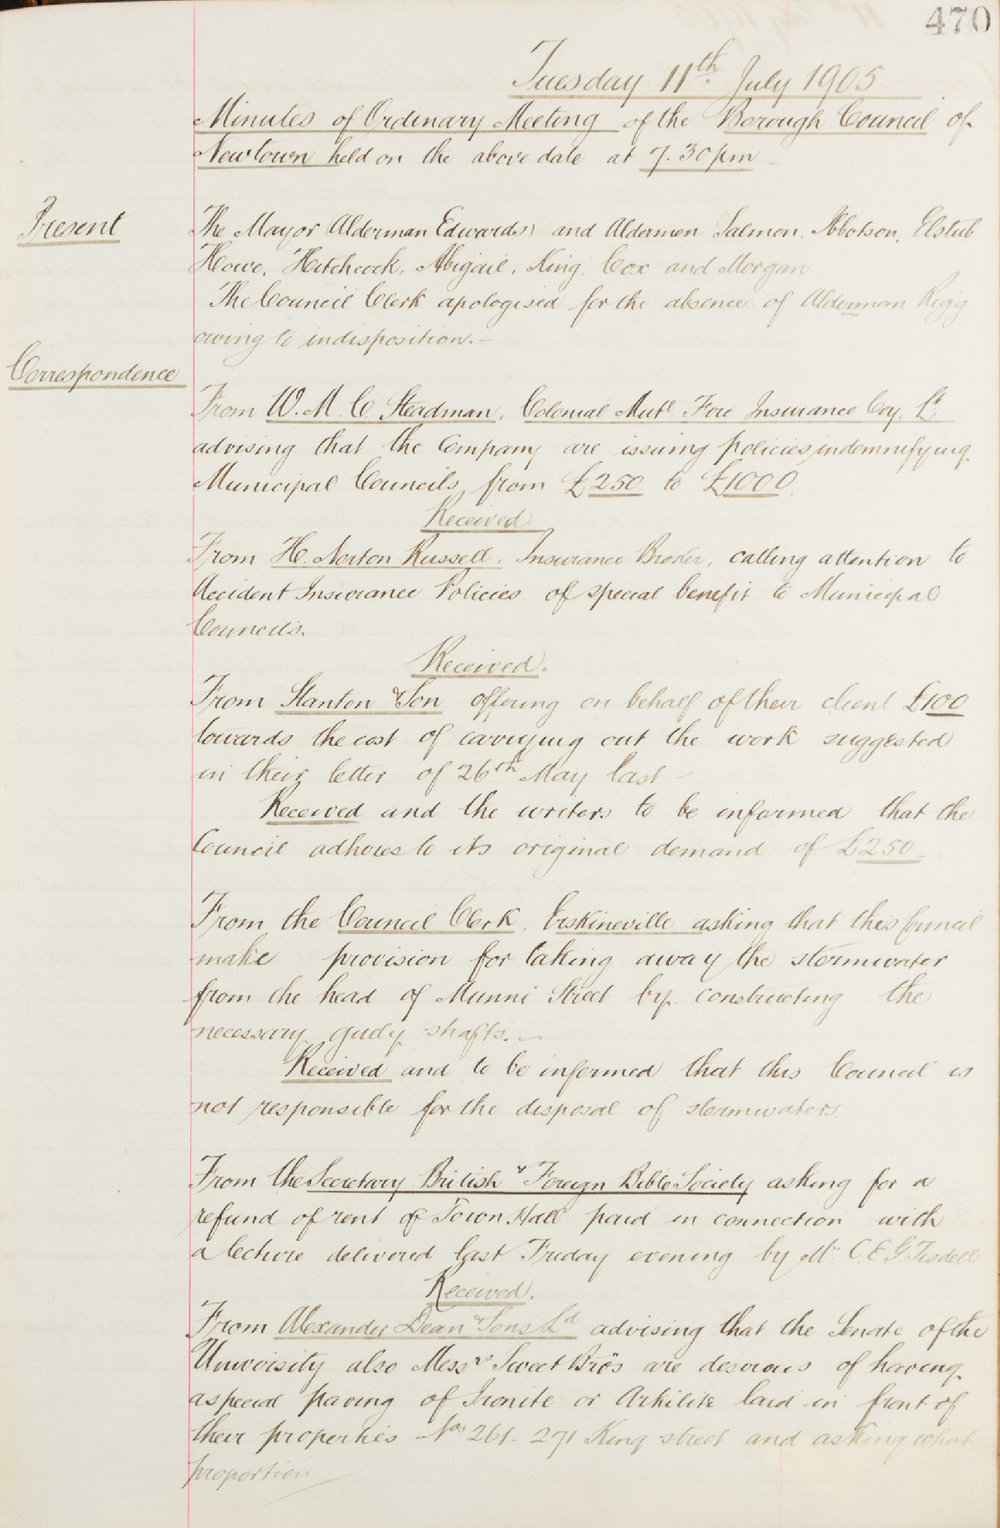 470
Tuesday 11th July 1905
Minutes of Ordinary Meeting of the Borough Council of
Newtown held on the above date at 7.30pm
Present
The Mayor (Alderman Edwards) and Aldermen Salmon, Ibbotson, Elstub
Howe, Hitchcock, Abigail, King, Cox and Morgan
The Council Clerk apologised for the absence of Alderman Rigg
owing to indisposition.-
Correspondence
From W. M. C. Steadman, Colonial Mutl Fire Insurance Coy. Ld
advising that the Company are issuing policies indemnifying
Municipal Councils, from £250 to £1000.
Received
From H. Norton Russell, Insurance Broker, calling attention to
Accident Insurance Policies of special benefit to Municipal
Councils.
Received.
From Stanton & Son offering on behalf of their client £100
towards the cost of carrying out the work suggested
in their letter of 26th May last -
Received and the writers to be informed that the
Council adheres to its original demand of £250.
From the Council Clerk, Erskineville asking that this Council
make provision for taking away the stormwater
from the head of Munni Street by constructing the
necessary gully shafts.-
Received and to be informed that this Council is
not responsible for the disposal of stormwaters.
From the Secretary British & Foreign Bible Society asking for a
refund of rent of Town Hall paid in connection with
a lecture delivered last Friday evening by Mr. C. E. G. Tisdell
Received.
From Alexander Dean & Sons Ld advising that the Senate of the
University also Messrs Sweet Bros are desirous of having
a special paving of Ironite or Arkilite laid in front of
their properties Nos 261. 271 King street and asking what
proportion